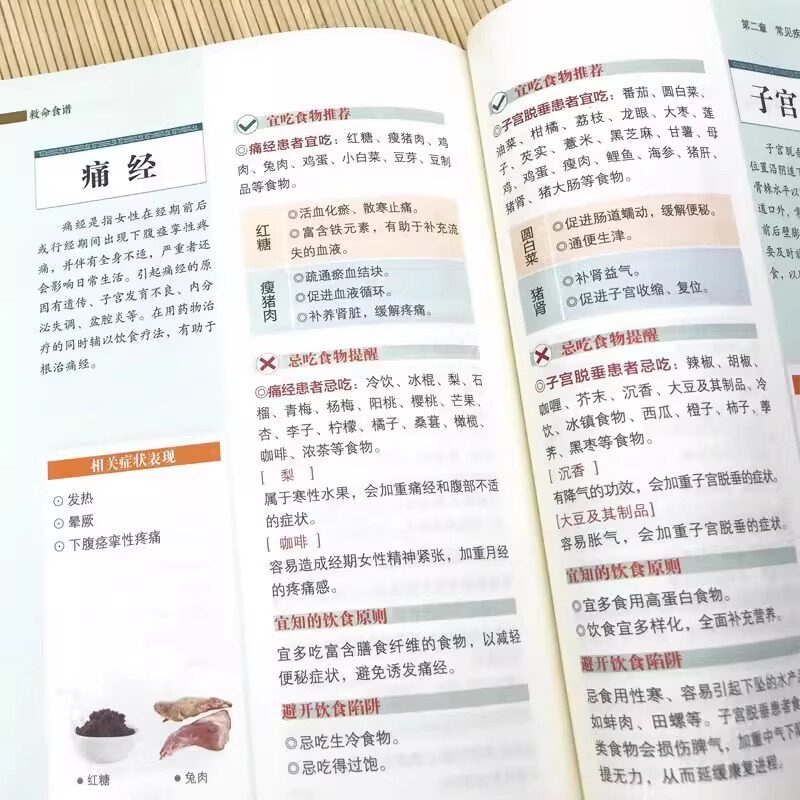 救命食谱
痛经
痛经是指女性在经期前后
或行经期间出现下腹痉挛性疼
痛，并伴有全身不适，严重者还
会影响日常生活。引起痛经的原
因有遗传、子宫发育不良、内分
泌失调、盆腔炎等。在用药物治
疗的同时辅以饮食疗法，有助于
根治痛经。
相关症状表现
⊙发热
⊙晕厥
⊙下腹痉挛性疼痛
●红糖
●兔肉
宜吃食物推荐
◎痛经患者宜吃：红糖、瘦猪肉、鸡
肉、兔肉、鸡蛋、小白菜、豆芽、豆制
品等食物。
红糖
◎活血化瘀、散寒止痛。
◎富含铁元素，有助于补充流
失的血液。
瘦猪肉
◎疏通瘀血结块。
◎促进血液循环。
◎补养肾脏，缓解疼痛。
忌吃食物提醒
◎痛经患者忌吃：冷饮、冰棍、梨、石
榴、青梅、杨梅、阳桃、樱桃、芒果、
杏、李子、柠檬、橘子、桑葚、橄榄、
咖啡、浓茶等食物。
[ 梨 ]
属于寒性水果，会加重痛经和腹部不适
的症状。
[ 咖啡 ]
容易造成经期女性精神紧张，加重月经
的疼痛感。
宜知的饮食原则
宜多吃富含膳食纤维的食物，以减轻
便秘症状，避免诱发痛经。
避开饮食陷阱
◎忌吃生冷食物。
◎忌吃得过饱。
宜吃食物推荐
◎子宫脱垂患者宜吃：番茄、圆白菜、
油菜、柑橘、荔枝、龙眼、大枣、莲
子、芡实、薏米、黑芝麻、甘薯、母
鸡、鸡蛋、瘦肉、鲤鱼、海参、猪肝、
猪肾、猪大肠等食物。
圆白菜
◎促进肠道蠕动，缓解便秘。
◎通便生津。
猪肾
◎补肾益气。
◎促进子宫收缩、复位。
忌吃食物提醒
◎子宫脱垂患者忌吃：辣椒、胡椒、
咖喱、芥末、沉香、大豆及其制品、冷
饮、冰镇食物、西瓜、橙子、柿子、荸
荠、黑枣等食物。
[ 沉香 ]
有降气的功效，会加重子宫脱垂的症状。
[大豆及其制品]
容易胀气，会加重子宫脱垂的症状。
宜知的饮食原则
◎宜多食用高蛋白食物。
◎饮食宜多样化，全面补充营养。
避开饮食陷阱
忌食用性寒、容易引起下坠的水产品
如蚌肉、田螺等。子宫脱垂患者食
类食物会损伤脾气，加重中气下陷
提无力，从而延缓康复进程。
第二章 常见疾
子宫
子宫脱
位置沿阴道下
骨棘水平以
道口外，常
前后壁膨
要及时前
食，以